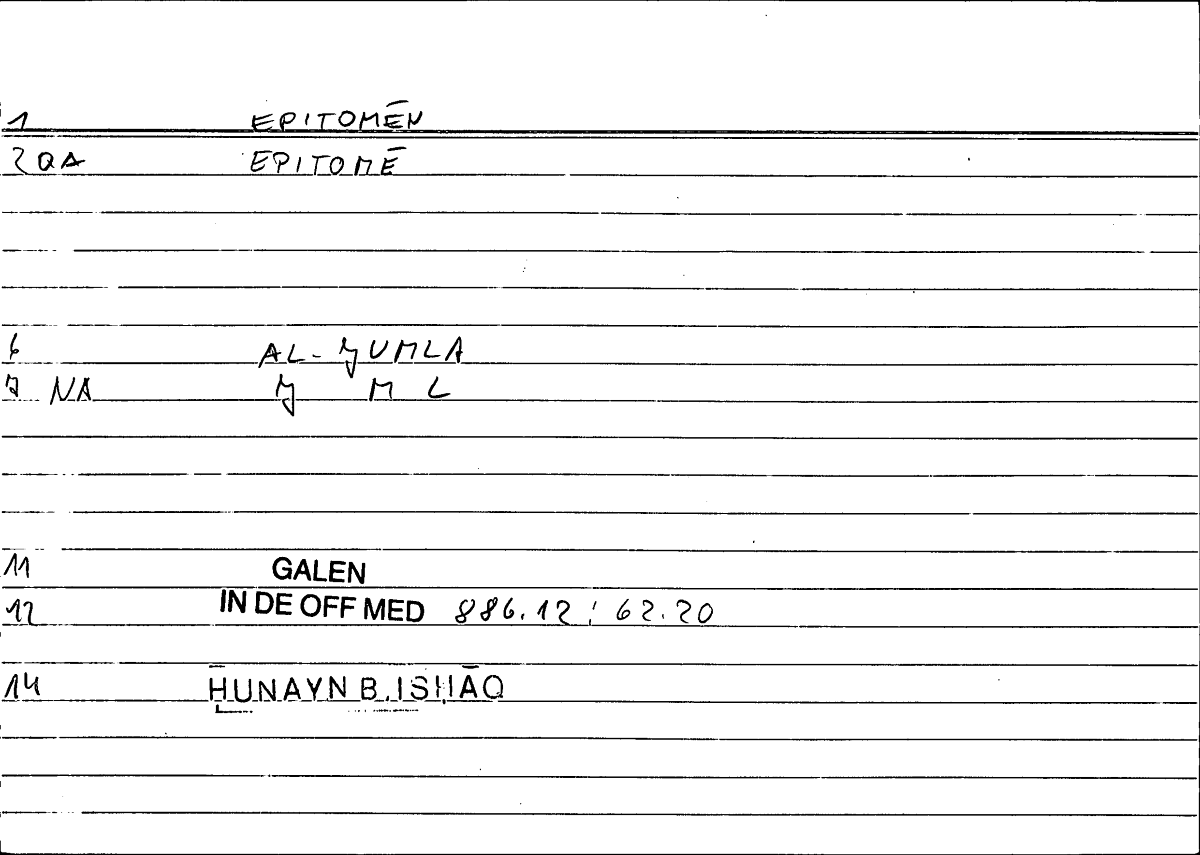 1 EPITOMĒN
2 QA EPITOMĒ
6 AL-ǦUMLA
7 NA Ǧ M L
11 GALEN
12 IN DE OFF MED 886.12 ; 62.20
14 ḤUNAYN B. ISḤĀQ